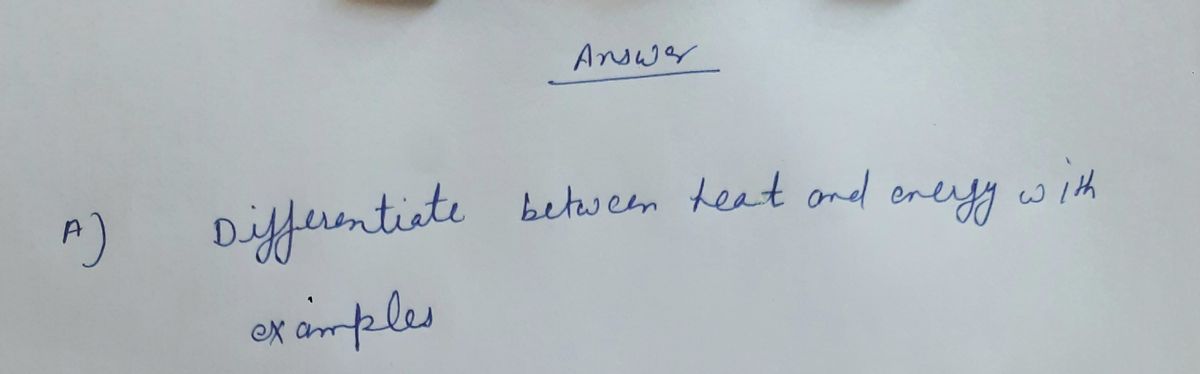 Answer
A) Differentiate between heat and energy with
examples